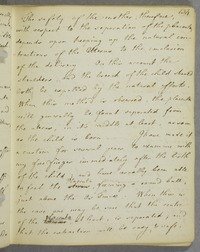 The safety of the mother therefore,
with respect to the separation of the placenta
depends upon keeping up the natural con-
tractions of the Uterus to the exclusion
of the delivery. On this account the
shoulders, and the breech of the child should
both be expelled by the natural efforts.
When this method is observed, the placenta
will generally be found separated from
the uterus, in its middle at least, as soon
as the child is born. I have made it
a custom for several years to examine with
my forefinger immediately after the birth
of the child, and have usually been able
to feel the forming a round ball,
just above the Os Pubis. When this is
the case, we may be sure that the center
of the at least, is separated, and
that the extraction will be easy, & safe.